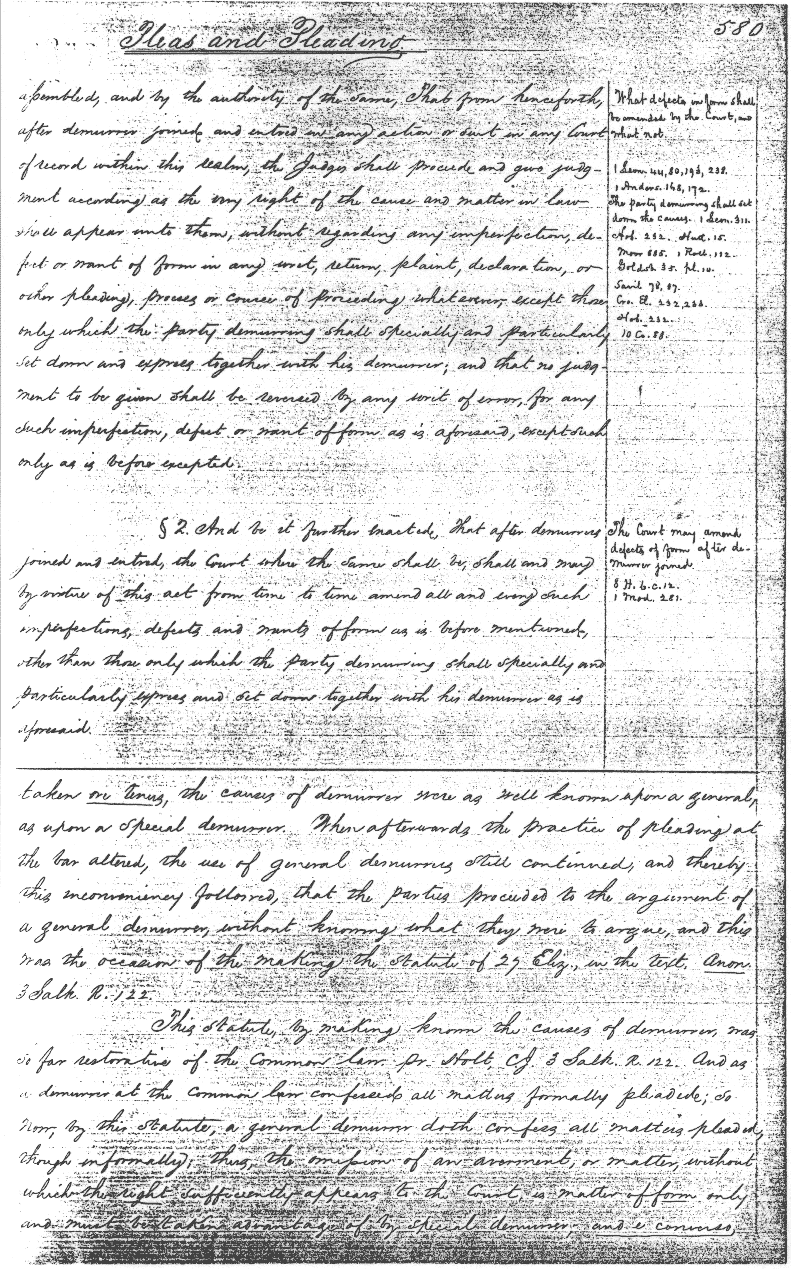 580
Pleas and Pleading
assembled, and by the authority of the same, That from henceforth,
after demurrer joined and entred in any action or suit in any Court
of record within this realm, the Judges shall procede and give judg-
ment according as the very right of the cause and matter in law
shall appear unto them, without regarding any imperfection, de-
fect or want of form in any writ, return, plaint, declaration, or
other pleading, process or course of proceeding whatsoever, except those
only which the party demurring shall specially and particularly
set down and express together with his demurrer; and that no judg-
ment to be given shall be reversed by any writ of error, for any
such imperfection, defect or want of form as is aforesaid, except such
only as is before excepted.
What defects in form shall
be amended by the Court, and
what not.
1 Leon. 44, 80, 193, 238.
1 Anders. 168, 172.
The party demurring shall set
down the causes. 1 Leon. 311.
Hob. 232. Hutt. 15.
Moor 885. 1 Roll. 112.
Goldsb. 35. pl. 10.
Savil 78, 87.
Cro. El. 232, 233.
Hob. 232.
10 Co. 88.
§ 2. And be it further enacted, That after demurrer
joined and entred, the Court where the same shall be, shall and may
by virtue of this act from time to time amend all and every such
imperfections, defects and wants of form as is before mentioned,
other than those only which the party demurring shall specially and
particularly express and set down together with his demurrer as is
aforesaid.
The Court may amend
defects of form after de-
murrer joined
8 H. 6. c. 12.
1 Mod. 281.
taken ore tenus, the causes of demurrer were as well known upon a general,
as upon a special demurrer. When afterwards the practice of pleading at
the bar altered, the use of general demurrers still continued; and thereby
this inconveniency followed, that the parties proceeded to the argument of
a general demurrer, without knowing what they were to argue, and this
was the occasion of the making the statute of 27 Eliz., in the text. Anon.
3 Salk. R. 122.
This statute, by making known the causes of demurrer, was
so far restorative of the Common law. pr. Holt, C.J. 3 Salk. R. 122. And as
a demurrer at the common law confessed all matters formally pleaded; so
now, by this statute, a general demurrer doth confess all matters pleaded,
though informally; thus, the omission of an averment, or matter, without
which the right sufficiently appears to the Court, is matter of form only
and must be taken advantage of by special demurrer, and e converso,